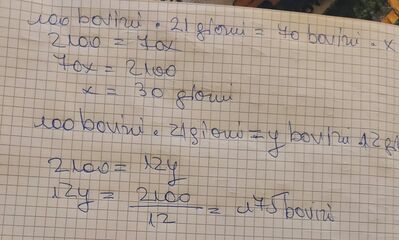 100 bovini · 21 giorni = 70 bovini · x
2100 = 70x
70x = 2100
x = 30 giorni
100 bovini · 21 giorni = y bovini · 12 gi
2100 = 12y
12y = 2100/12 = 175 bovini